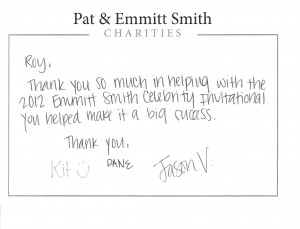 Pat & Emmitt Smith
CHARITIES
Roy,
Thank you so much in helping with the
2012 Emmitt Smith Celebrity Invitational.
You helped make it a big success.
Thank you,
Kit DANE Jason V.